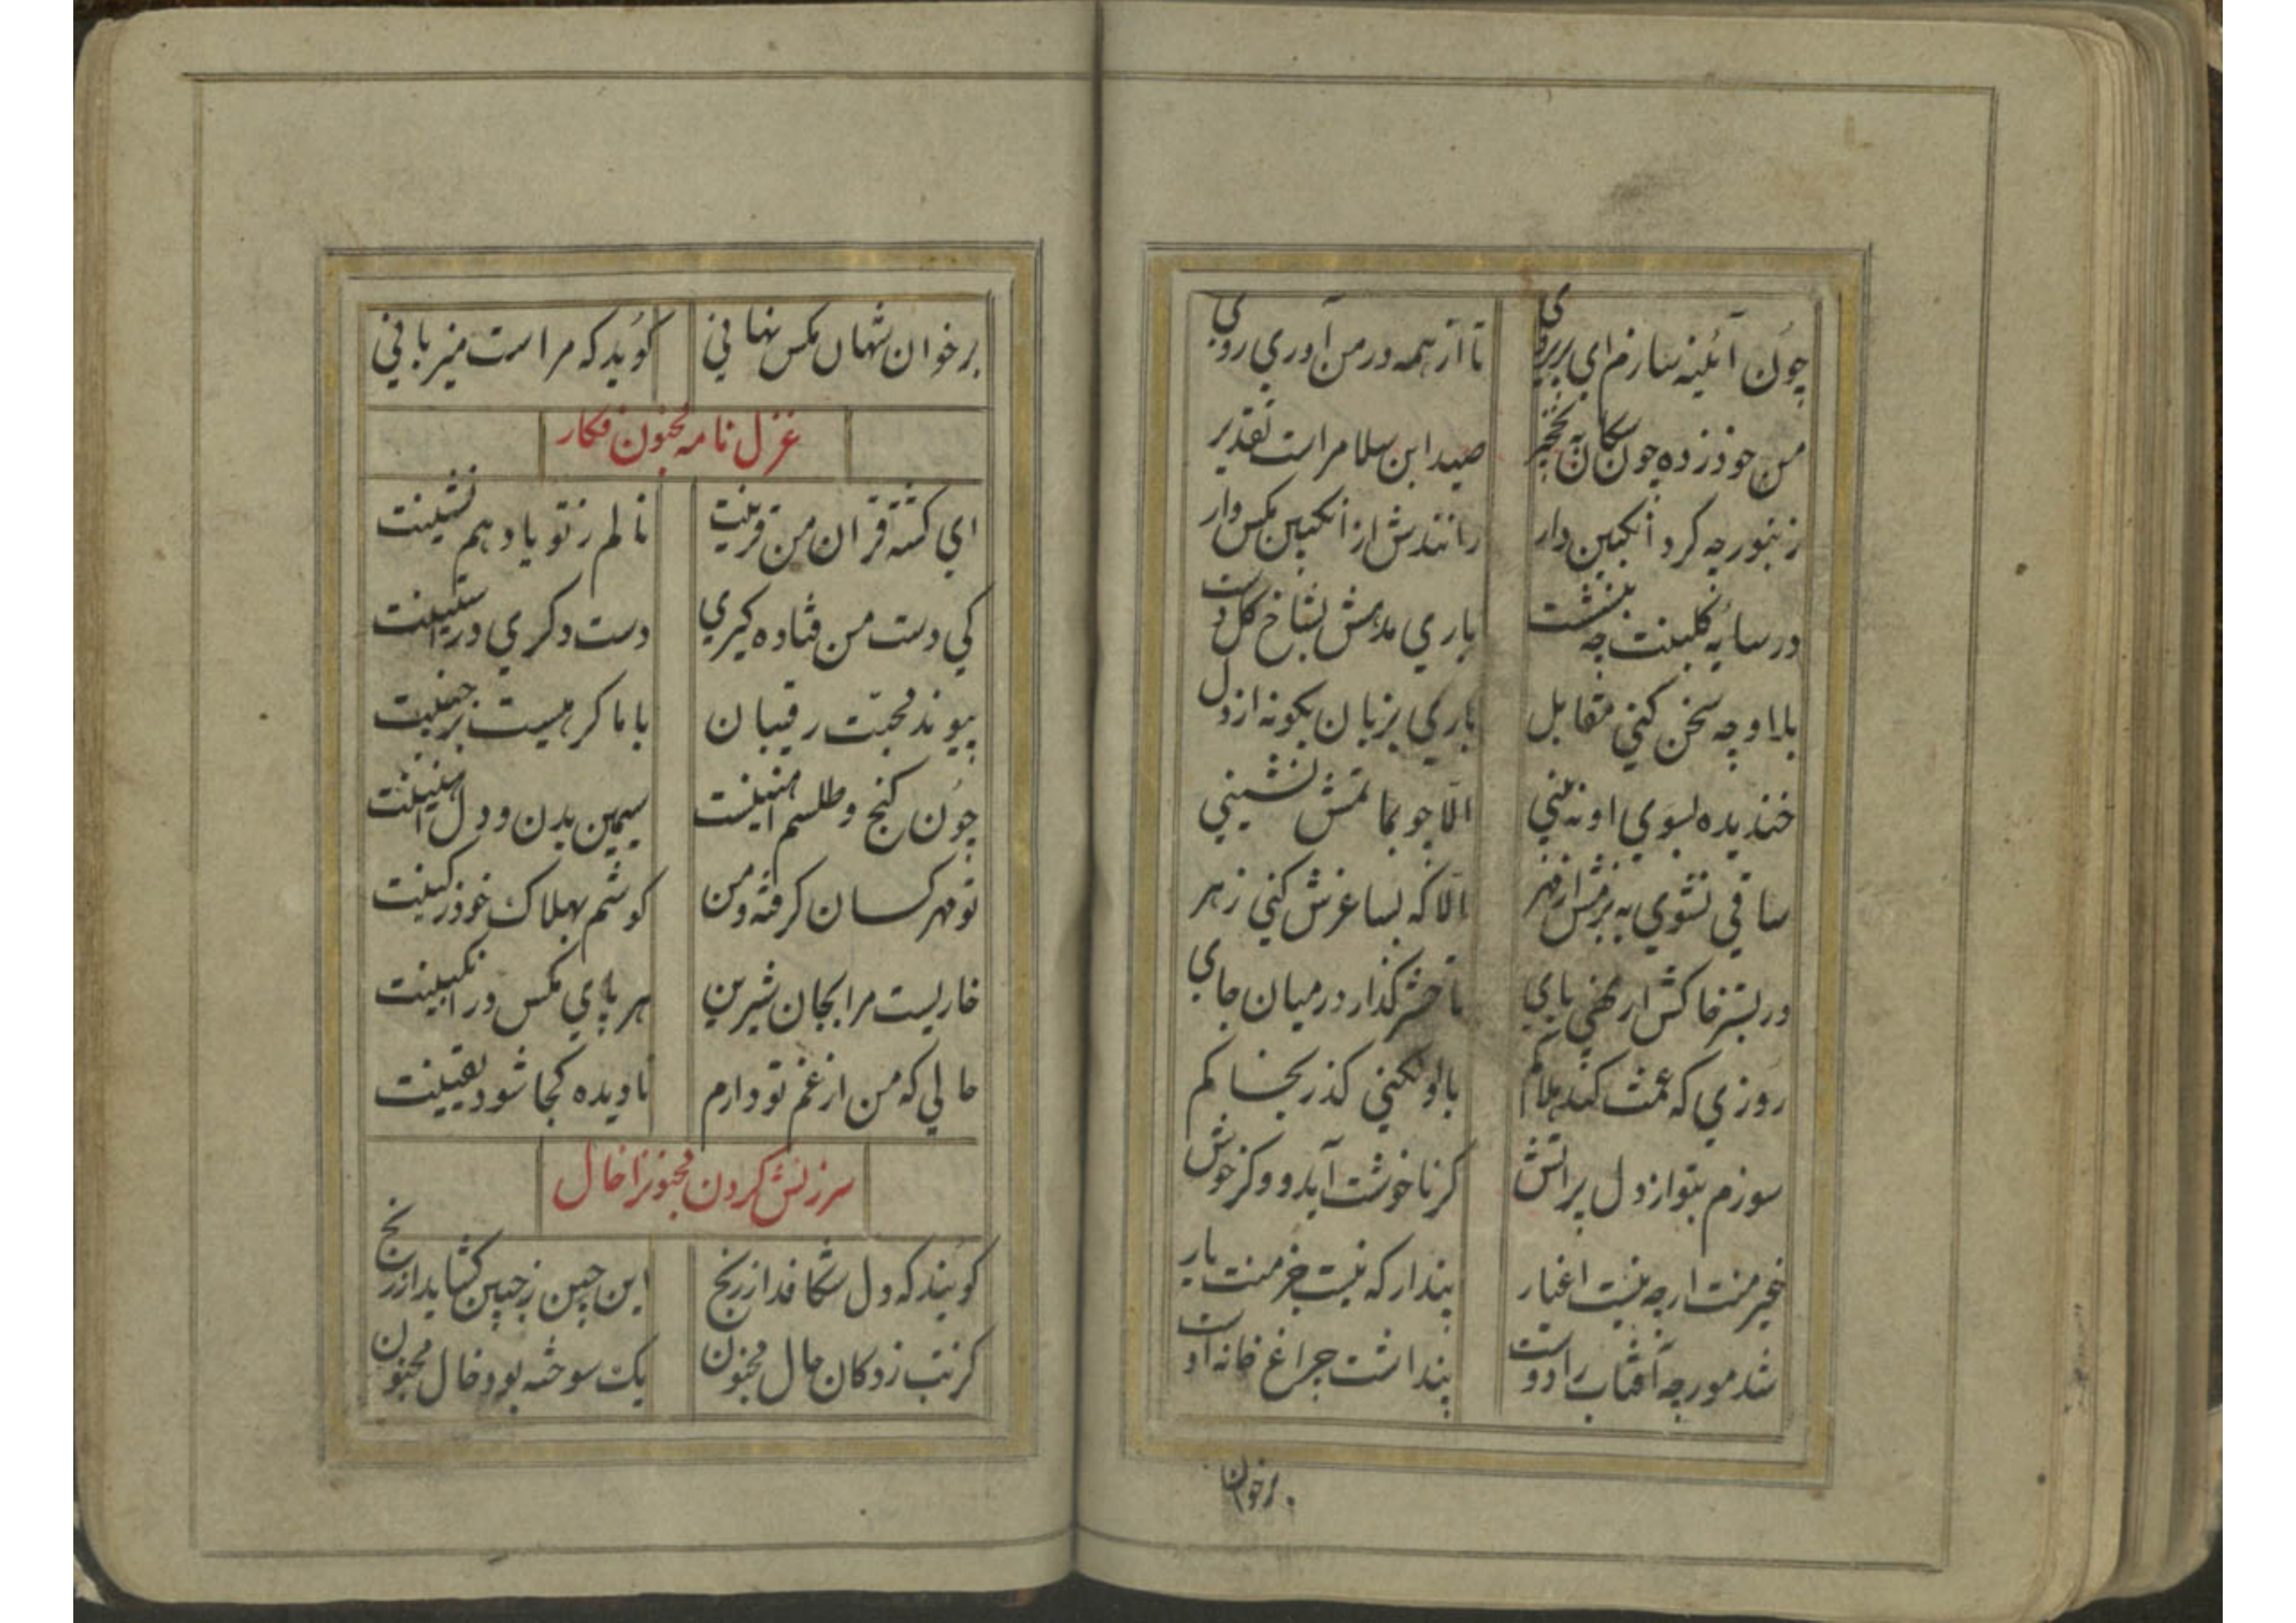 چون آئینه سازم ای پریروی تا از همه در من آوری روی
من خود زده چون سکان نخجیر صید ابن سلام راست تقدیر
زنبور چه کرد انکبین دار رانندش از انکبین مکس وار
در سایه کلبنت چه بنشست باری مدهش بشاخ کل دست
با او چه سخن کنی مقابل باری بزبان بکونه از دل
خندیده بسوی او نه بینی الا چو بماتمش نشینی
ساقی نشوی به بزمش از مهر الا که بساغرش کنی زهر
در بستر خاکش ار نهی پای تا حشر گذار در میان جای
روزی که غمت کند هلاکم با او نکنی کذر بخاکم
سوزم بتو از دل پر آتش کر ناخوشت آید و وکر خوش
غیر منت ار چه نیست اغیار پندار که نیست جز منت یار
شد مورچه آفتاب را دوست پنداشت چراغ خانه اوست
برخوان
برخوان شهان مکس نهانی کوید که مراست میزبانی
غزل نامه مجنون فکار
ای کشته قران من قرینت نالم ز تو یا ز هم نشینت
کی دست من فتاده کیری دست دکری در آستینت
پیوند محبت رقیبان با ما کرهیست بر جبینت
چون کنج و طلسم آهنینست سیمین بدن و دل آهنینت
تو مهر کسان کرفته و من کوشم بهلاک خود ز کینت
خاریست مرا بجان شیرین هر پای مکس در انکبینت
حالی که من از غم تو دارم نادیده کجا شود یقینت
سرزنش کردن مجنونرا خال
کویند که دل شکافد از رنج این چین ز جبین کشاید از رنج
کر نیت زدکان مال مجنون یک سوخته بود خال مجنون